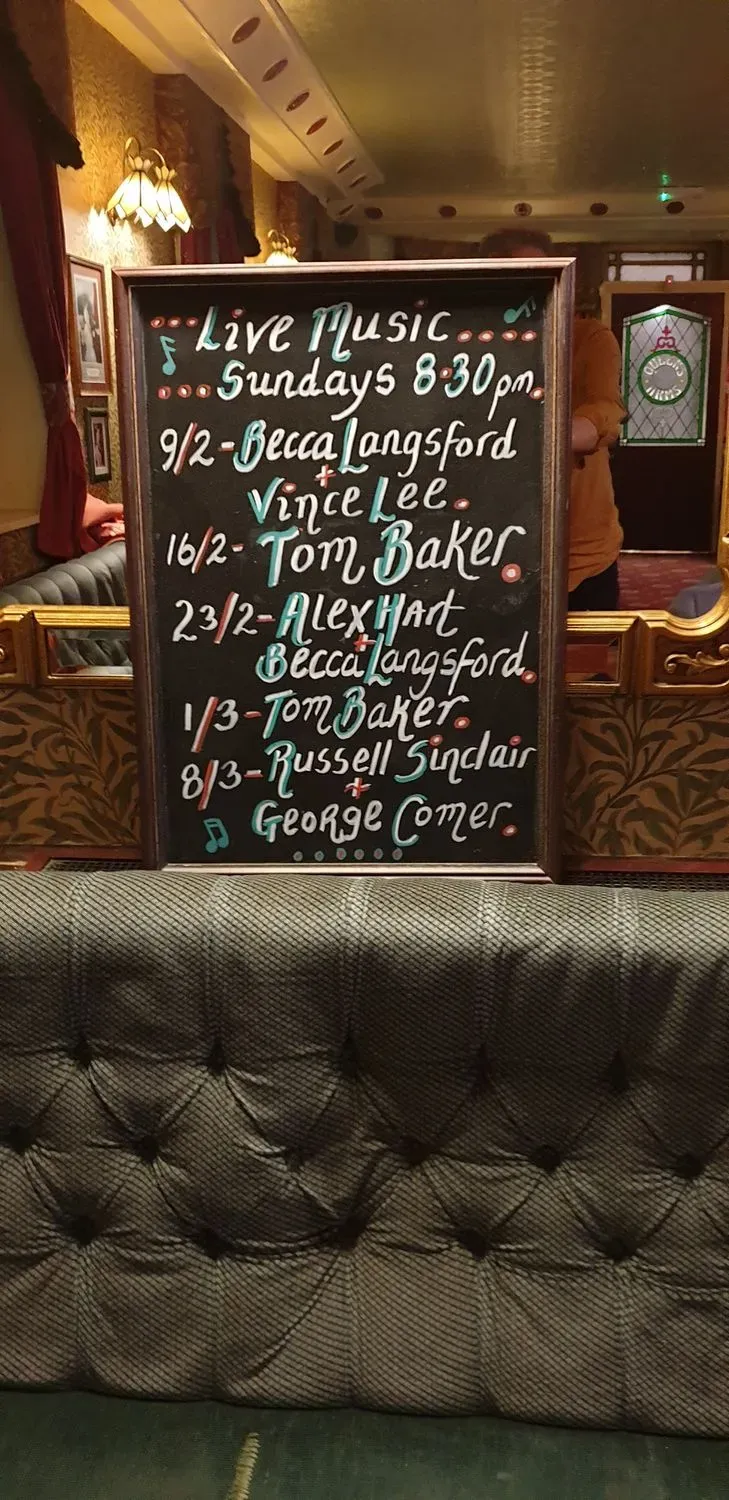 Live Music
Sundays 8·30pm.
9/2 - Becca Langsford
+
Vince Lee.
16/2 - Tom Baker.
23/2 - Alex Hart
+
Becca Langsford.
1/3 - Tom Baker.
8/3 - Russell Sinclair
+
George Comer.
QUEENS
ARMS